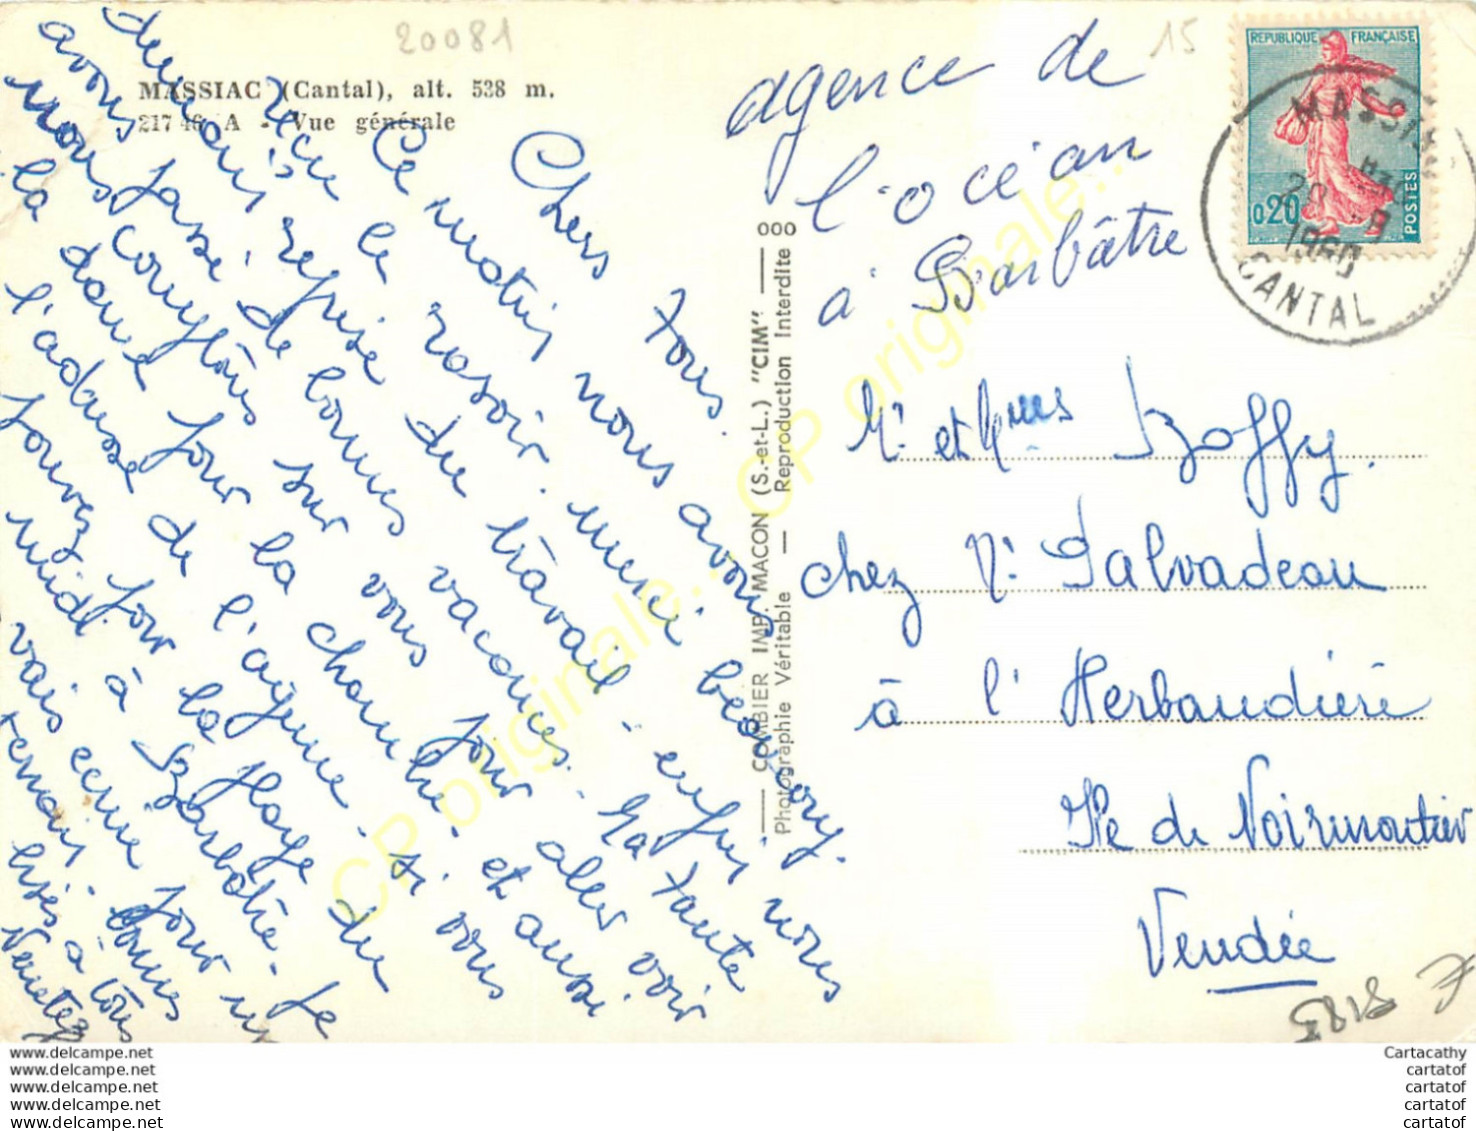 20081
15
MASSIAC (Cantal), alt. 538 m.
217 46 A - Vue générale
Chers tous.
Ce matin nous avons
reçu le rasoir. merci beaucoup.
demain reprise du travail - enfin nous
avons passé de bonnes vacances. La tante
nous comptons sur vous pour aller voir
la dame pour la chambre. et aussi
l'adresse de l'agence. si vous
pouvez pour la plage du
midi à Barbâtre. Je
vais écrire pour
retenir. bonnes
bises à tous
COMBIER IMP. MACON (S.-et-L.) "CIM"
Photographie Véritable — Reproduction Interdite
000
agence de
l'océan
à Barbâtre
REPUBLIQUE FRANÇAISE
0,20
POSTES
MASSIAC
20 -9
1960
CANTAL
Mr et Mmes Boffy.
chez Mr Salvadeau
à l'Herbaudière
Ile de Noirmoutier
Vendée
CP originale...
CP originale...
www.delcampe.net
www.delcampe.net
www.delcampe.net
www.delcampe.net
www.delcampe.net
Cartacathy
cartatof
cartatof
cartatof
cartatof